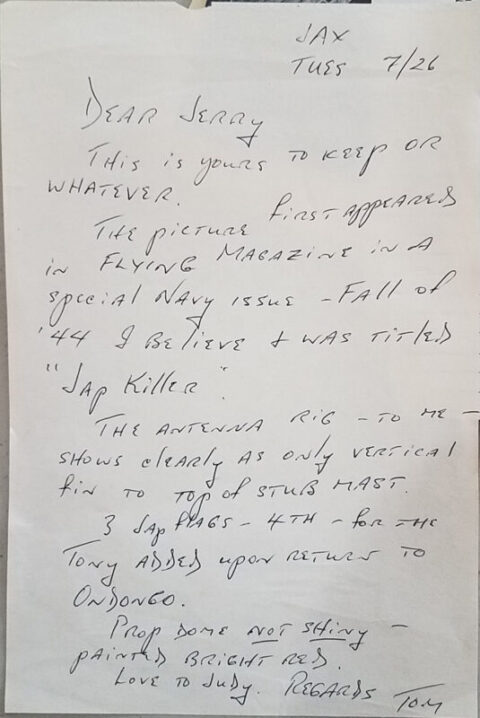 JAX
TUES 7/26
DEAR JERRY
THIS is yours TO KEEP OR
WHATEVER.
THE picTURE first APPEARED
in FLYING MAGAZINE in A
special NAvy issue - FAll of
'44 I BElieve & WAS TiTlED
"JAp Killer".
THE ANTENNA RIG - TO ME -
SHOWS clEARly AS only vERTicAl
fin TO Top of STUB MAST.
3 JAp flAGS - 4TH - foR THE
Tony ADDED upon RETURN TO
ONDONGO.
PROP DOME NOT SHiny -
pAiNTED BRIGHT RED.
LovE To JuDy. REGARDS TOM